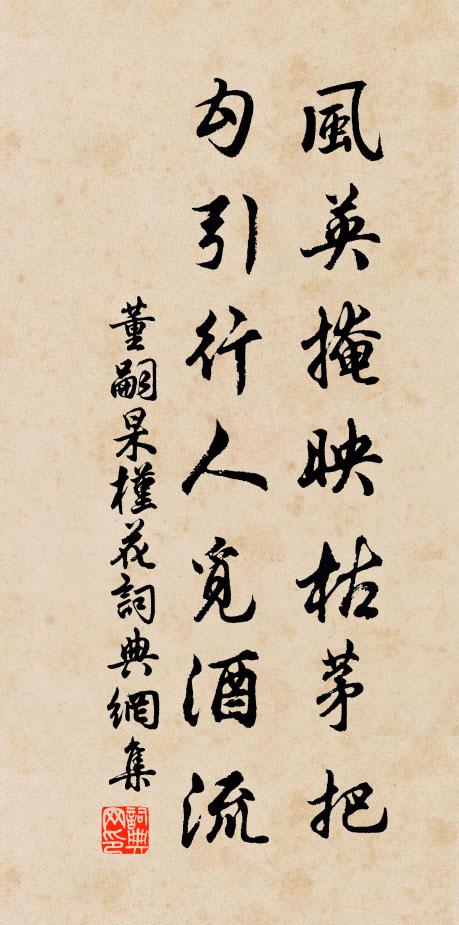 風英掩映枯茅把
勾引行人覓酒流
董嗣杲槿花詞典網集
詞典网印